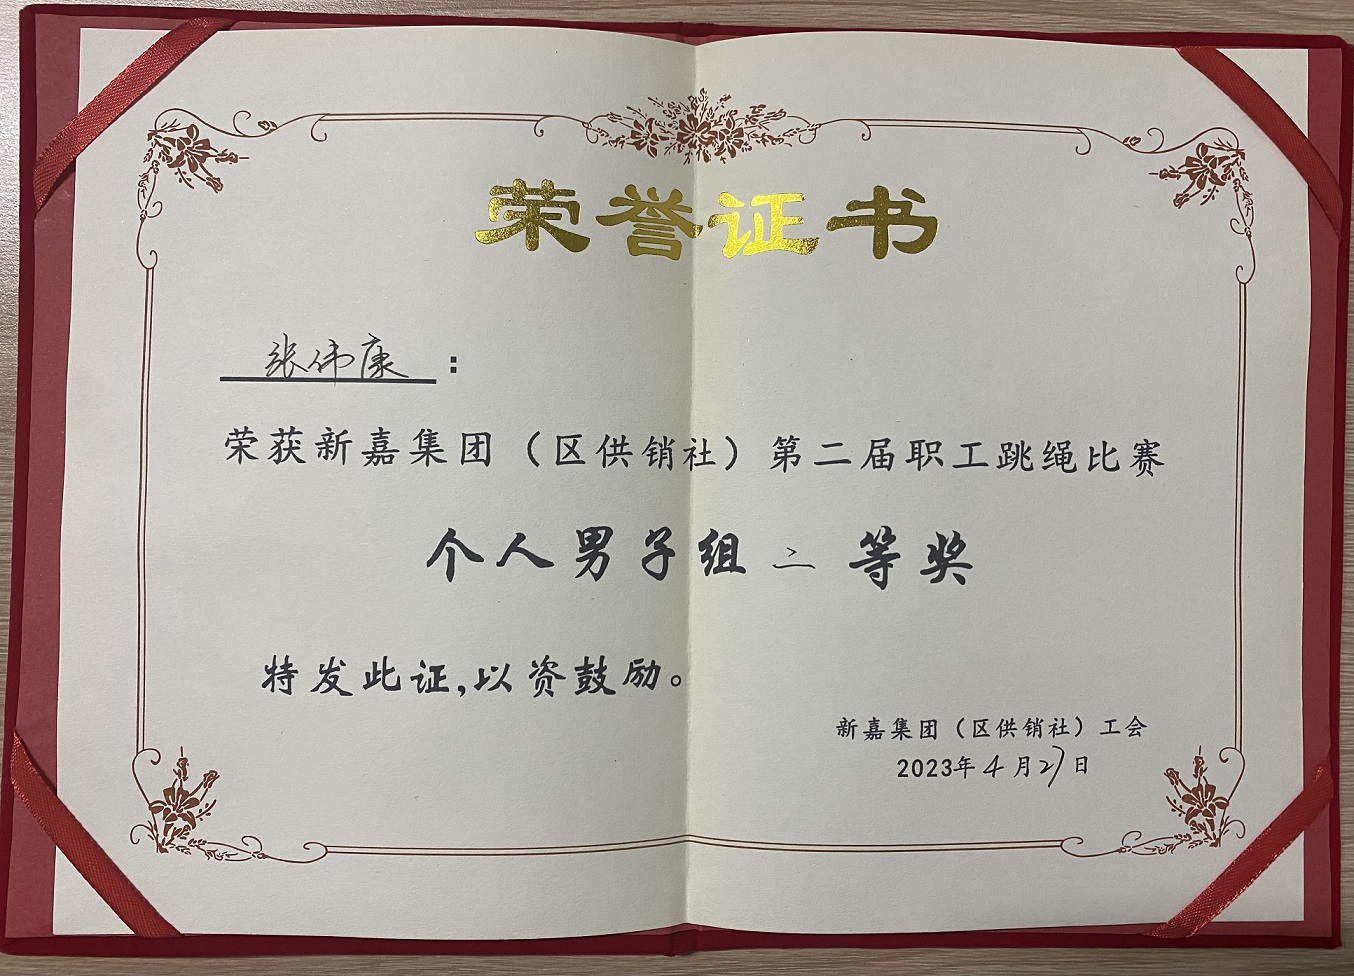 荣誉证书
张伟康：
荣获新嘉集团（区供销社）第二届职工跳绳比赛
个人男子组二等奖
特发此证,以资鼓励。
新嘉集团（区供销社）工会
2023年4月27日